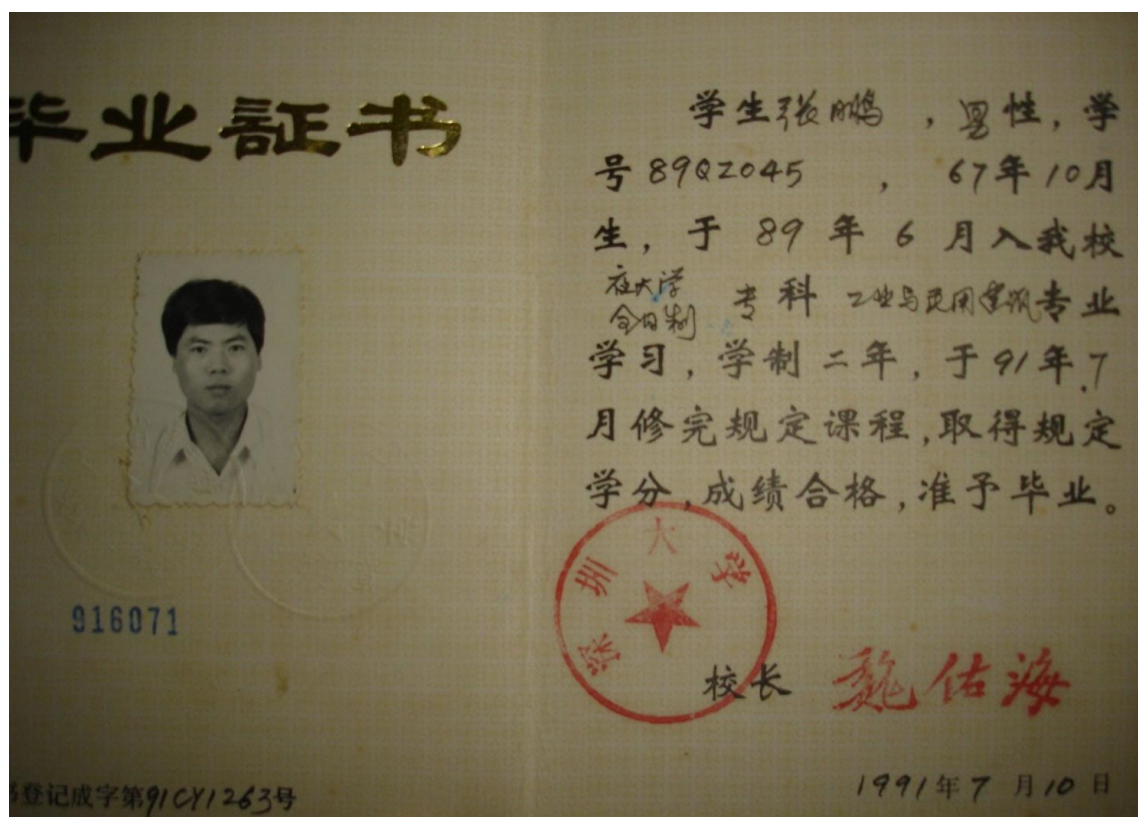 毕业証书
916071
书登记成字第91CY1263号
学生张鹏，男性，学
号89QZ045，67年10月
生，于89年6月入我校
在大学
全日制 专科 工业与民用建筑专业
学习，学制二年，于91年7
月修完规定课程，取得规定
学分，成绩合格，准予毕业。
深圳大学
校长 魏佑海
1991年7月10日